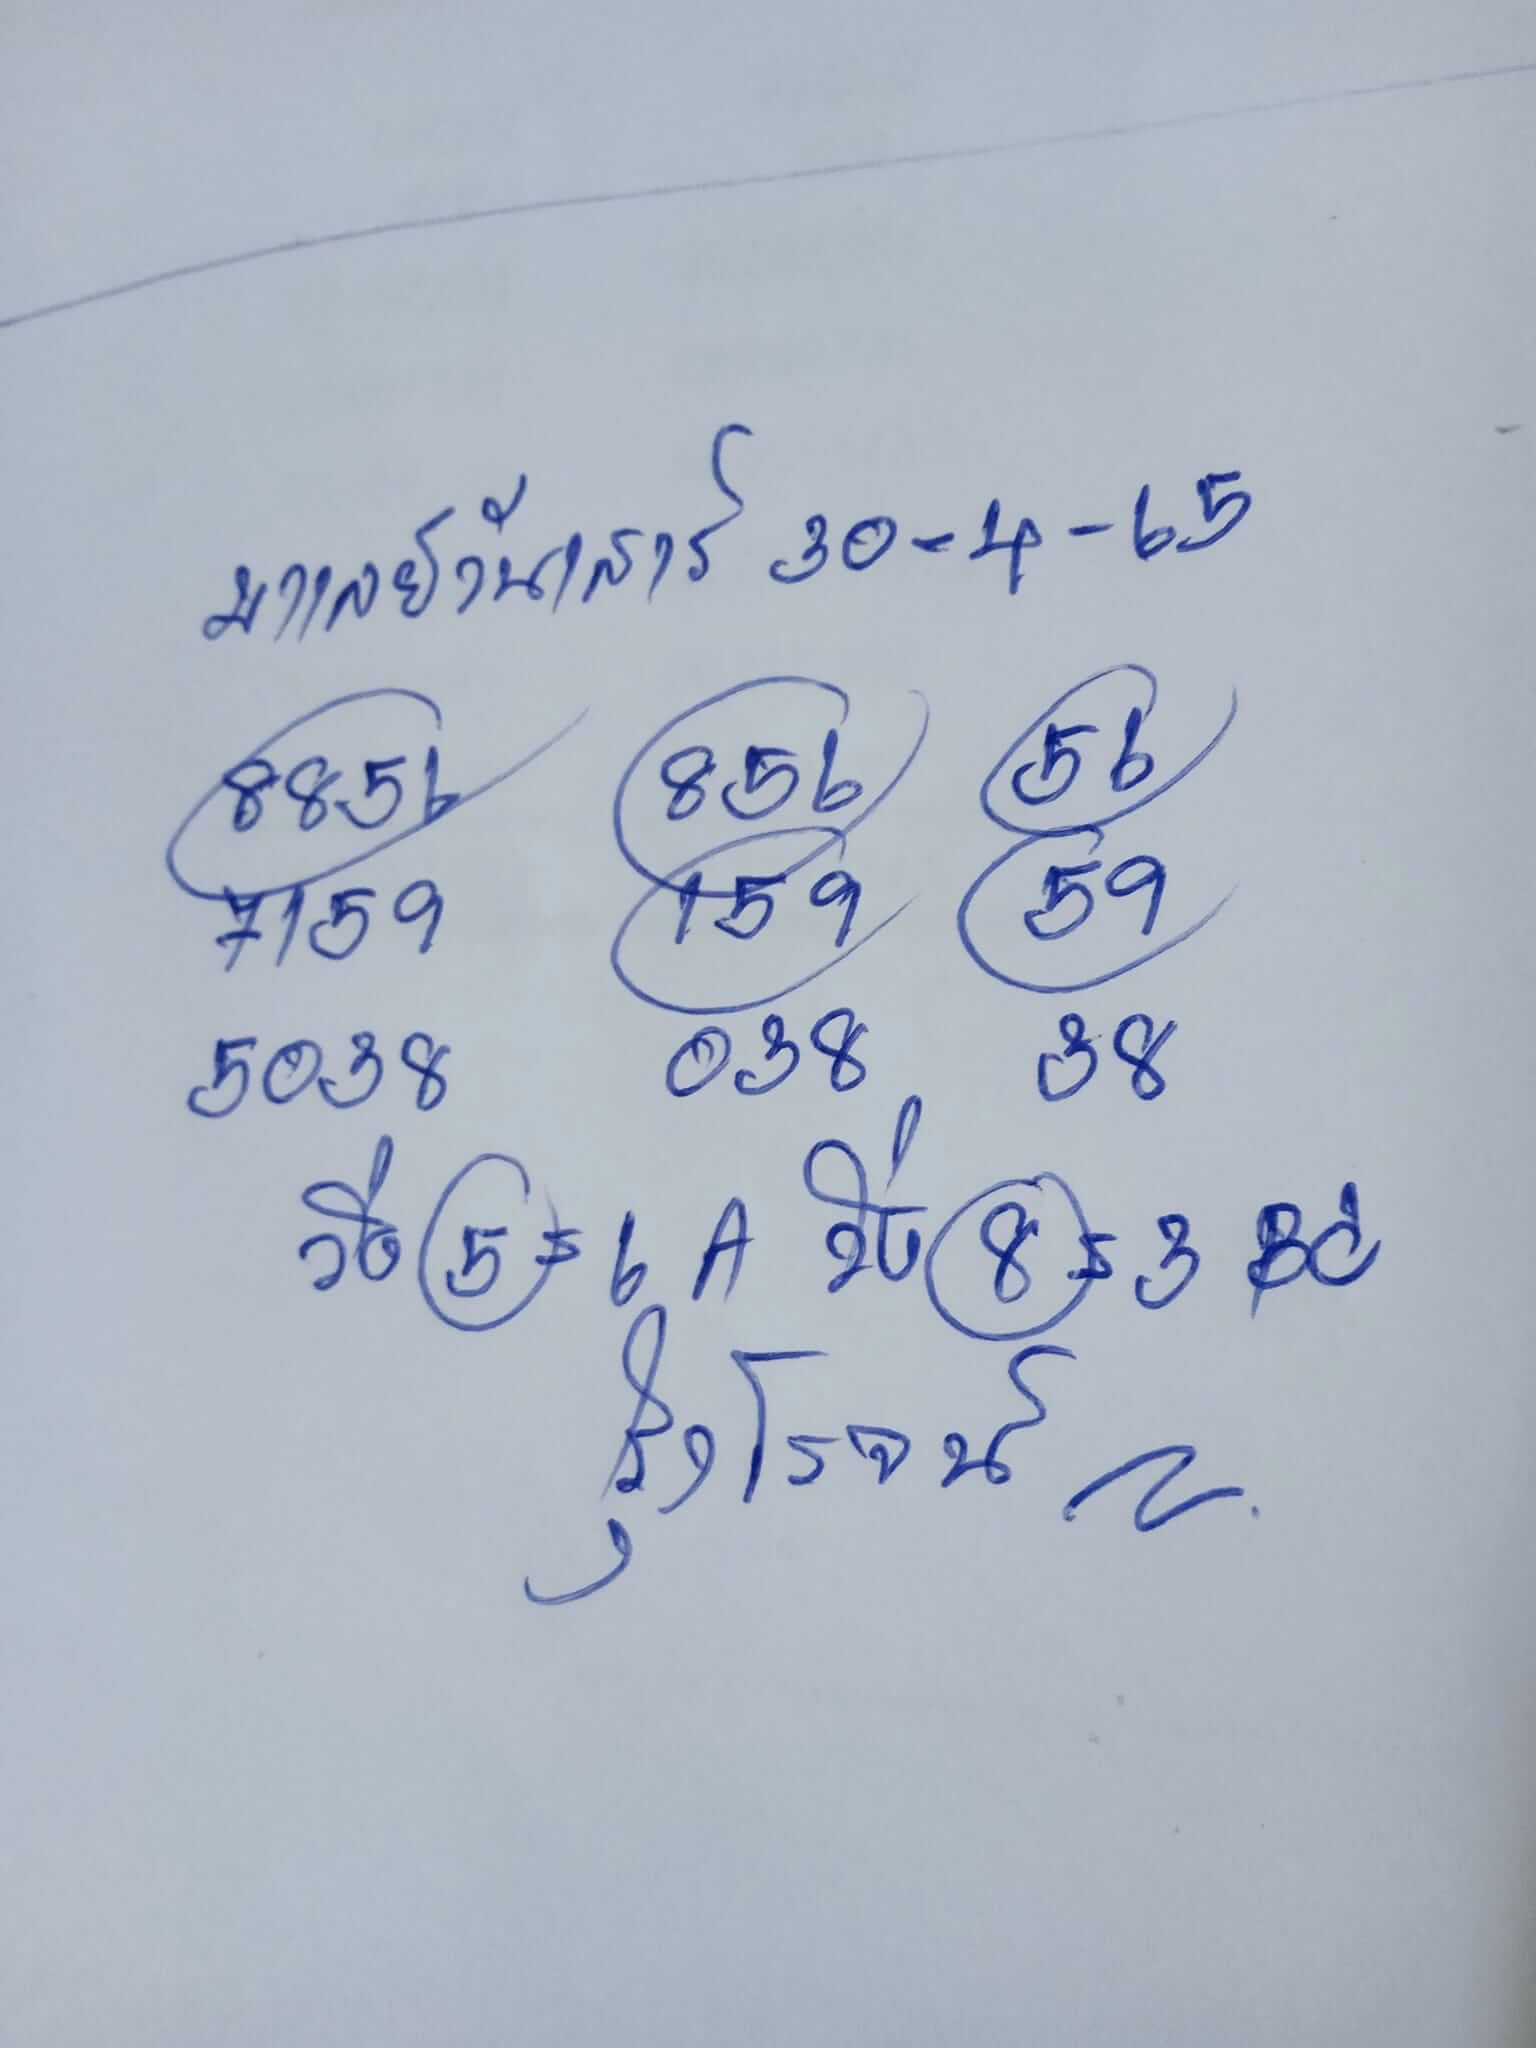 มาเลย์วันเสาร์ 30-4-65
8856 856 56
7159 159 59
5038 038 38
วิ่ง 5 = 6 A วิ่ง 8 = 3 BC
รุ่งโรจน์